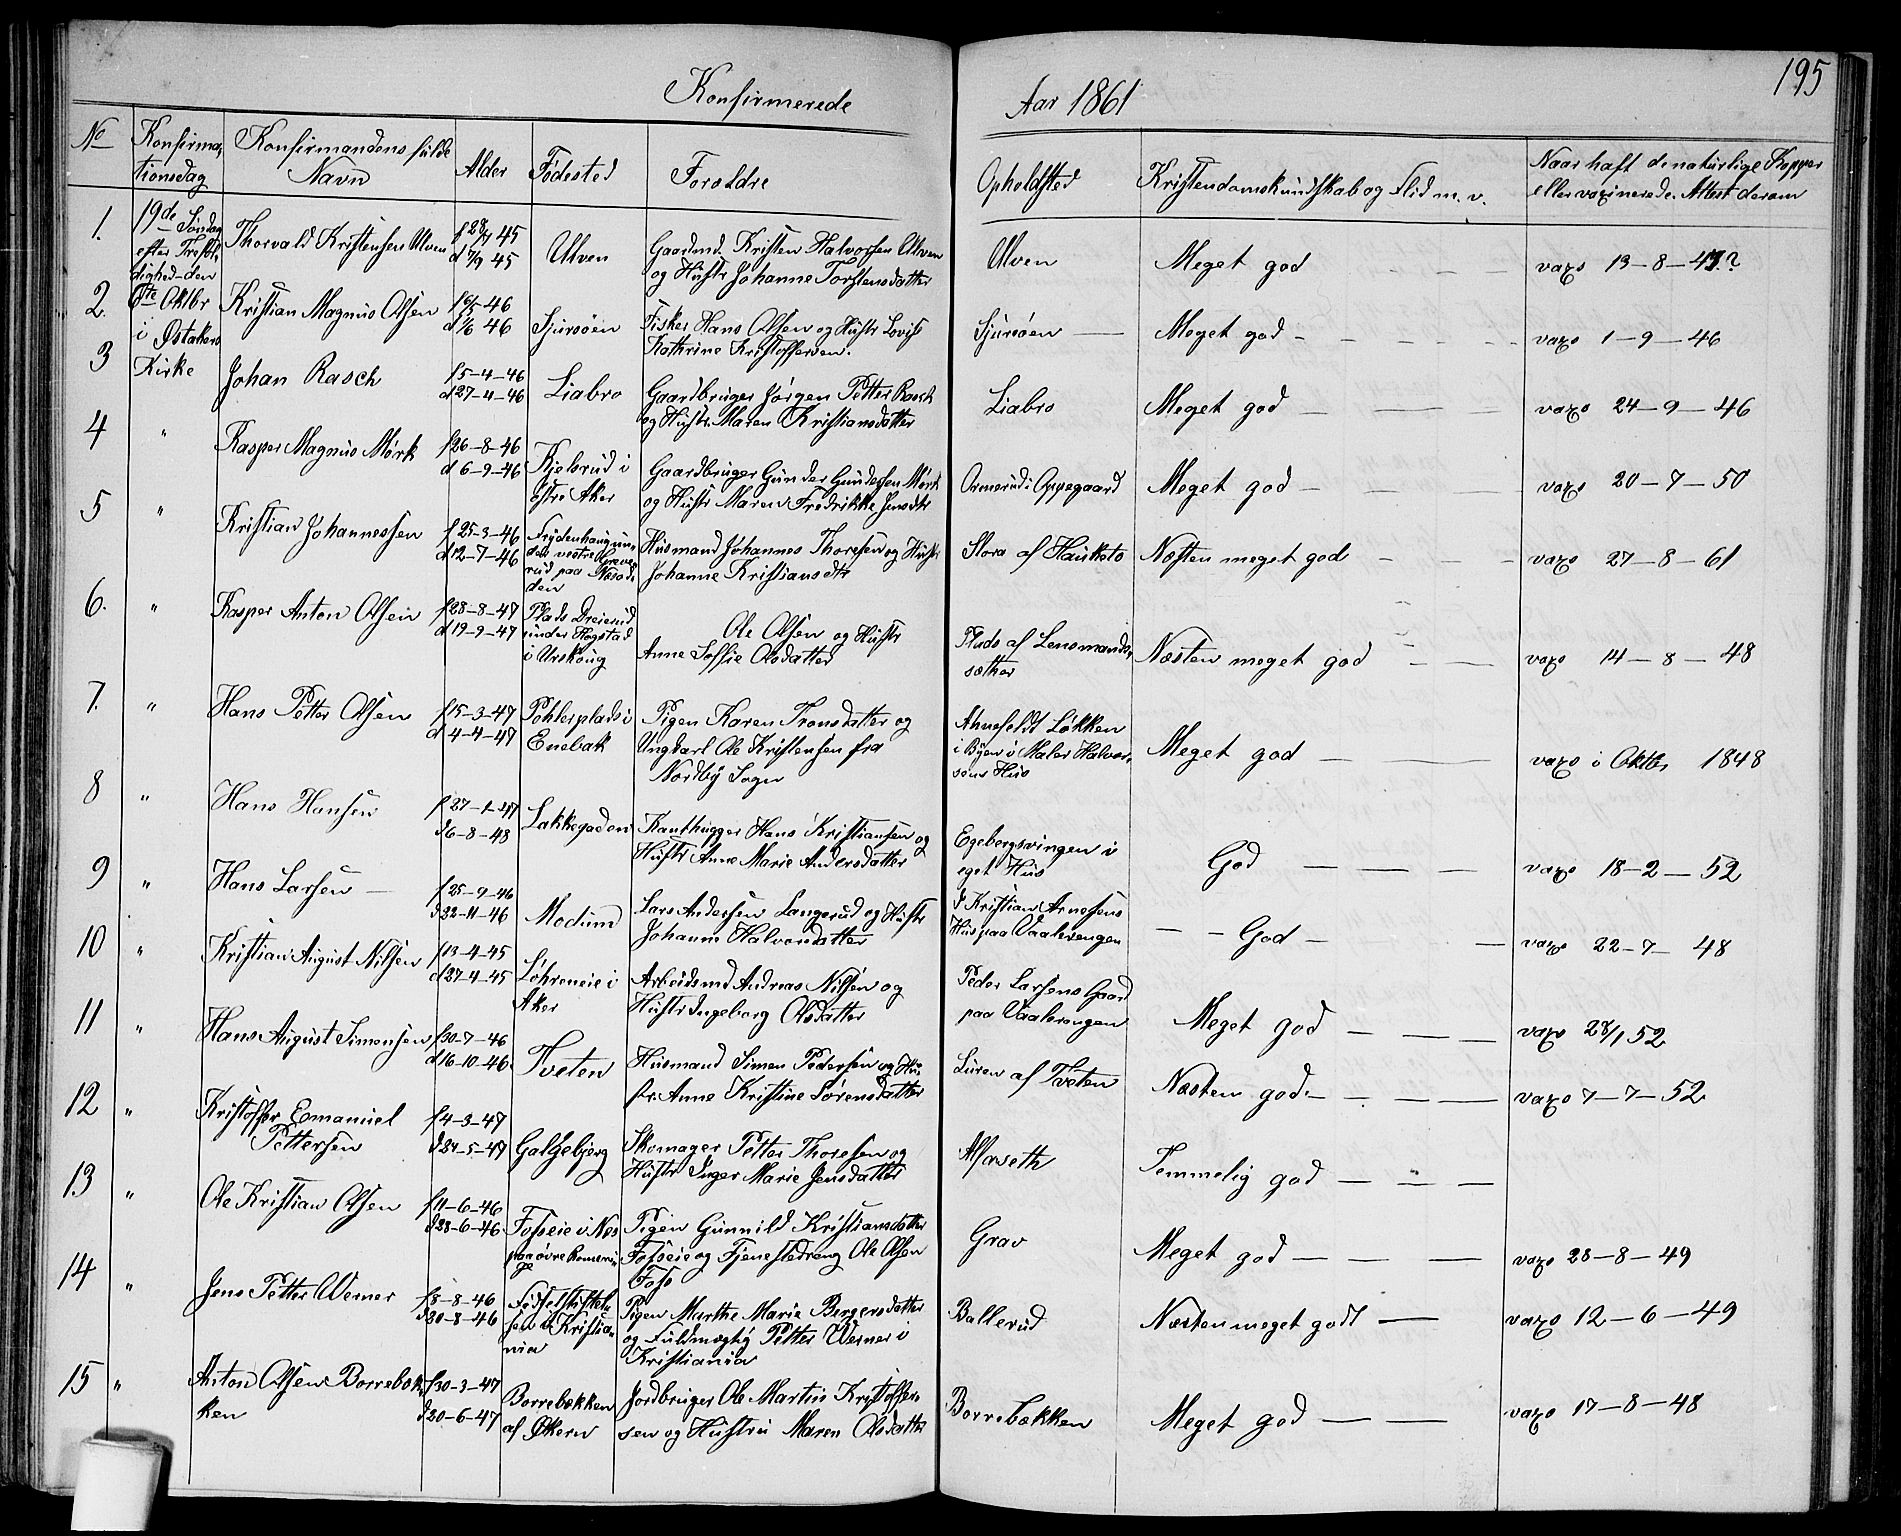 195
Konfirmerede Aar 1861
No Konfirma, Konfirmandens fulde Alder Fødested Foroldre Opholdsted Kristendomskundskab og Flid m. v. Naar haft de naturlige Kopper
tionsdag Navn eller vaxinerede. Attest derom
1. 19de Søndag Thorvald Kristensen Ulven 45 Ulven Gaardmd. Kristen Halvorsen Ulven Ulven Meget god vaxs 13-8-47?
efter Trefol, 45 og Hustr Johanne Torstensdatter
dighed den
2. 6te Oktbr Kristian Magnus Olsen 46 Sjursøen Fisker Hans Olsen og Hustr Lovise Sjursøen Meget god vaxs 1-9-46
i Østakers 46 Kathrine Kristoffersen.
3 Kirke Johan Rasch f 5-4-46 Liabro Gaardbruger Jørgen Petter Rasch Liabro Meget god vaxs 24-9-46
d 27-4-46 og Hustr. Maren Kristiansdatter
4 " Kasper Magnus Mørk f 26-8-46 Kjelsrud i Gaardbruger Gunder Gundersen Mørk Ormerud i Oppegaard Meget god vaxs 20-7-50
d 6-9-46 østre Aker og Hustr Maren Fredrikke Jensdtr
5 " Kristian Johannessen f 25-3-46 Frydenhaug un- Husmand Johannes Thoresen og Hustr Stora af Hauketo Næsten meget god vaxs 27-8-61
d 12-7-46 der vestre Greve- Johanne Kristiansdtr
rud paa Nesod-
den
6. " Kasper Anton Olsen f 28-8-47 Plads Dreierud Ole Olsen og Hustr Plads af Lensmands, Næsten meget god vaxs 14-8-48
d 19-9-47 under Hogstad Anne Soffie Olsdatter sæther
i Urskoug
7. " Hans Petter Olsen f 15-3-47 Pohlerplads i Pigen Karen Tronsdatter og Ahnefeldt Løkken Meget god vaxs i Oktbr 1848
d 4-4-47 Enebak Ungkarl Ole Kristensen fra i Byen i Maler Halvor,
Nordby Sogn sens Hus
8 " Hans Hansen f 27-1-47 Lakkegaden Kanthugger Hans Kristiansen og Egebergsvingen i God vaxs 18-2-52
d 6-8-48 Hustr Anne Marie Andersdatter eget Hus
9 " Hans Larsen f 25-9-46 Modum Lars Andersen Langerud og Hustr I Kristian Arnesens God vaxs 22-7-48
d 22-11-46 Johanne Halvorsdatter Hus paa Vaalerengen
10 " Kristian August Nilsen f 13-4-45 Løhreneie i Arbeidsmd Andreas Nilsen og Peder Larsens Gaard Meget god vaxs 28/1 52
d 27-4-45 Aker Hustr Ingeborg Olsdatter paa Vaalerengen
11 " Hans August Simensen f 30-7-46 Tveten Husmand Simen Pedersen og Hu Luren af Tveten Næsten god vaxs 7-7-52
d 16-10-46 str. Anne Kristine Sørensdatter
12 " Kristoffer Emanuel f 4-3-47 Galgebjerg Skomager Petter Thoresen og Alfaseth Temmelig god
Pettersen d 24-5-47 Hustr Inger Marie Jensdatter
13 " Ole Kristian Olsen f 11-6-46 Fosseie i Nes Pigen Gunnild Kristiansdatter Grav Meget god vaxs 28-8-49
d 28-6-46 paa øvre Romeri, Fosseie og Tjenestedreng Ole Olsen
ge Foss
14 " Jens Petter Werner f 8-8-46 Fødselstiftel, Pigen Marthe Marie Bergersdatter Ballerud Næsten meget godt vaxs 12-6-49
d 30-8-46 sen i Kristia, og Fuldmægtig Petter Werner i
nia Kristiania
15 " Anton Olsen Borrebæk, f 30-3-47 Borrebækken Jordbruger Ole Martin Kristoffer Borrebækken Meget god vaxs 17-8-48
ken d 20-6-47 af Økern sen og Hustru Maren Olsdatter